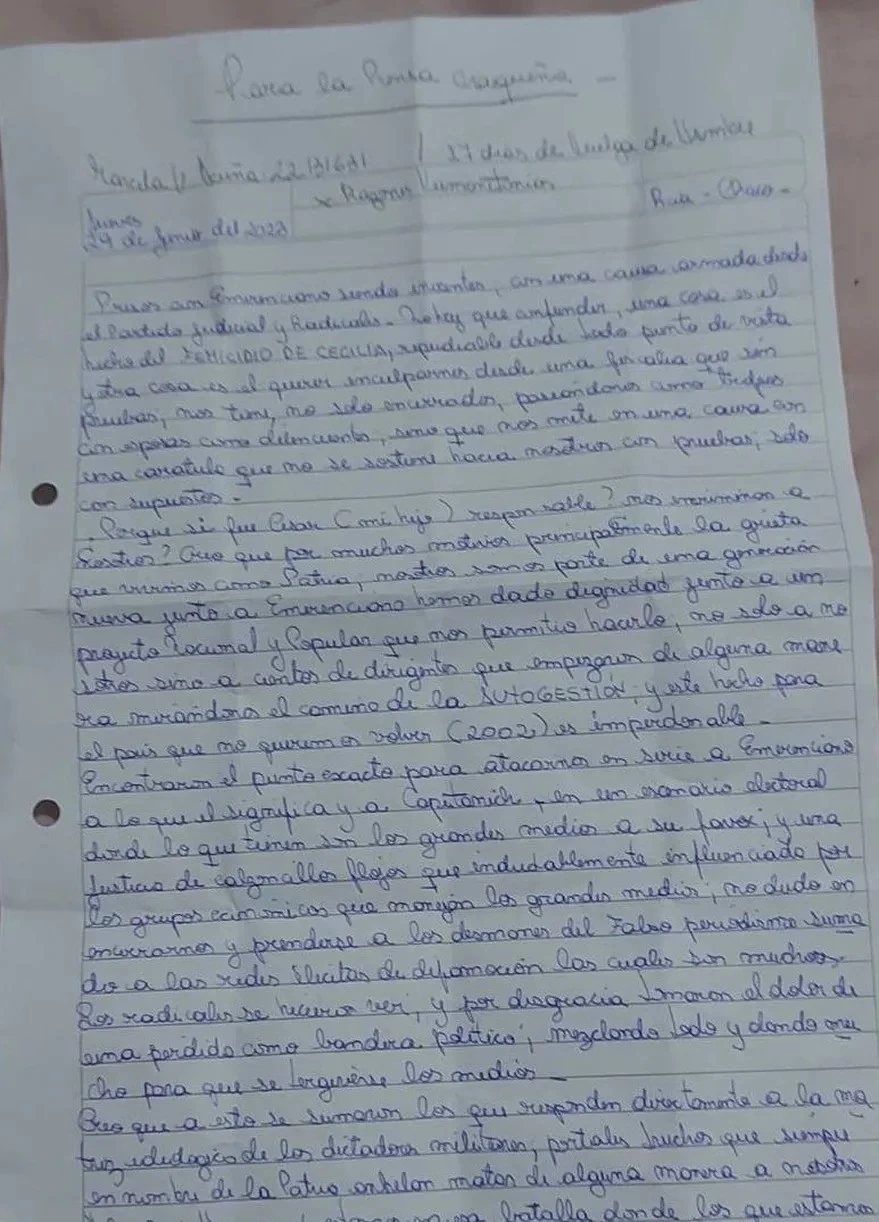 Para la Prensa chaqueña -
Marcela V. Acuña 22.131631 / 17 dias de huelga de Hambre
x Razones Humanitarias
Rcia - Chaco -
Jueves
29 de Junio del 2023
Presos con Emerenciano siendo inocentes, con una causa armada desde
el Partido judicial y Radicales. No hay que confundir, una cosa es el
hecho del FEMICIDIO DE CECILIA, repudiable desde todo punto de vista
y otra cosa es el querer inculparnos desde una fiscalia que sin
pruebas, nos tiene, no solo encerrados, paseandonos como trofeos
con esposas como delincuentes, sino que nos mete en una causa con
una caratula que no se sostiene hacia nosotros con pruebas; solo
con supuestos.
Porque si fue Cesar (mi hijo) responsable? nos incriminan a
nosotros? Creo que por muchos motivos principalmente la grieta
que vivimos como Patria, nosotros somos parte de una generación
nueva junto a Emerenciano hemos dado dignidad junto a un
proyecto Nacional y Popular que nos permitio hacerlo, no solo a no
sotros sino a cientos de dirigentes que empezaron de alguna mane
ra mirandonos el camino de la AUTOGESTIÓN; y este hecho para
el pais que no queremos volver (2002) es imperdonable -
Encontraron el punto exacto para atacarnos en serie a Emerenciano
a lo que el significa y a Capitanich, en un escenario electoral
donde lo que tienen son los grandes medios a su favor; y una
Justicia de calzoncillos flojos que indudablemente influenciado por
los grupos economicos que manejan los grandes medios; no dudo en
encerrarnos y prenderse a los desmanes del Falso periodismo suma
do a las redes ilicitas de difamación las cuales son muchas.
Los radicales se hicieron ver, y por desgracia tomaron el dolor de
una perdida como bandera politica; mezclando todo y dando mu
cho para que se tergiverse los medios -
Creo que a esto se sumaron los que responden directamente a la ma
triz ideologica de los dictadores militares, portales truchos que siempre
en nombre de la Patria anhelan matar de alguna manera a nosotros
batalla donde los que estamos